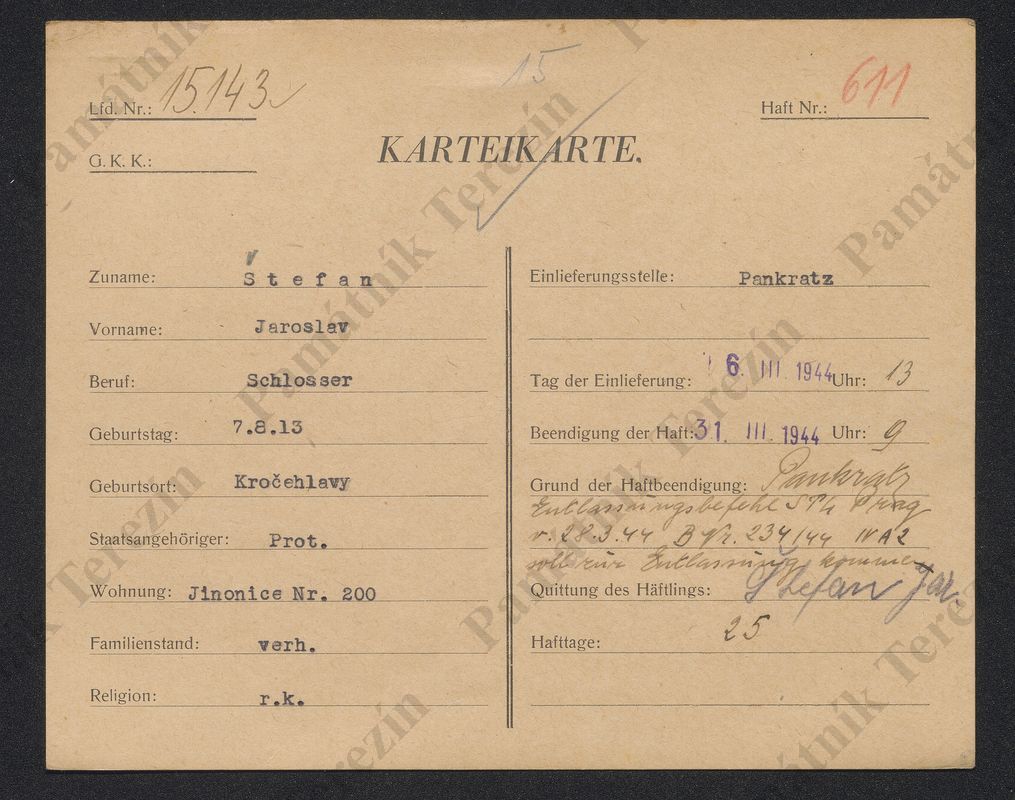 15
Lfd. Nr.: 15143
Haft Nr.: 611
G. K. K.:
KARTEIKARTE.
Zuname: Štefan
Vorname: Jaroslav
Beruf: Schlosser
Geburtstag: 7.8.13
Geburtsort: Kročehlavy
Staatsangehöriger: Prot.
Wohnung: Jinonice Nr. 200
Familienstand: verh.
Religion: r.k.
Einlieferungsstelle: Pankratz
Tag der Einlieferung: 6. III. 1944 Uhr: 13
Beendigung der Haft: 31. III. 1944 Uhr: 9
Grund der Haftbeendigung: Pankratz
Entlassungsbefehl STL Prag
v. 28.3.44 B Nr. 234/44 IV A 2
soll zur Entlassung kommen
Quittung des Häftlings: Štefan Jar.
Hafttage: 25
Památník Terezín
Památník Terezín
Památník Terezín
Památník Terezín
Památník Terezín